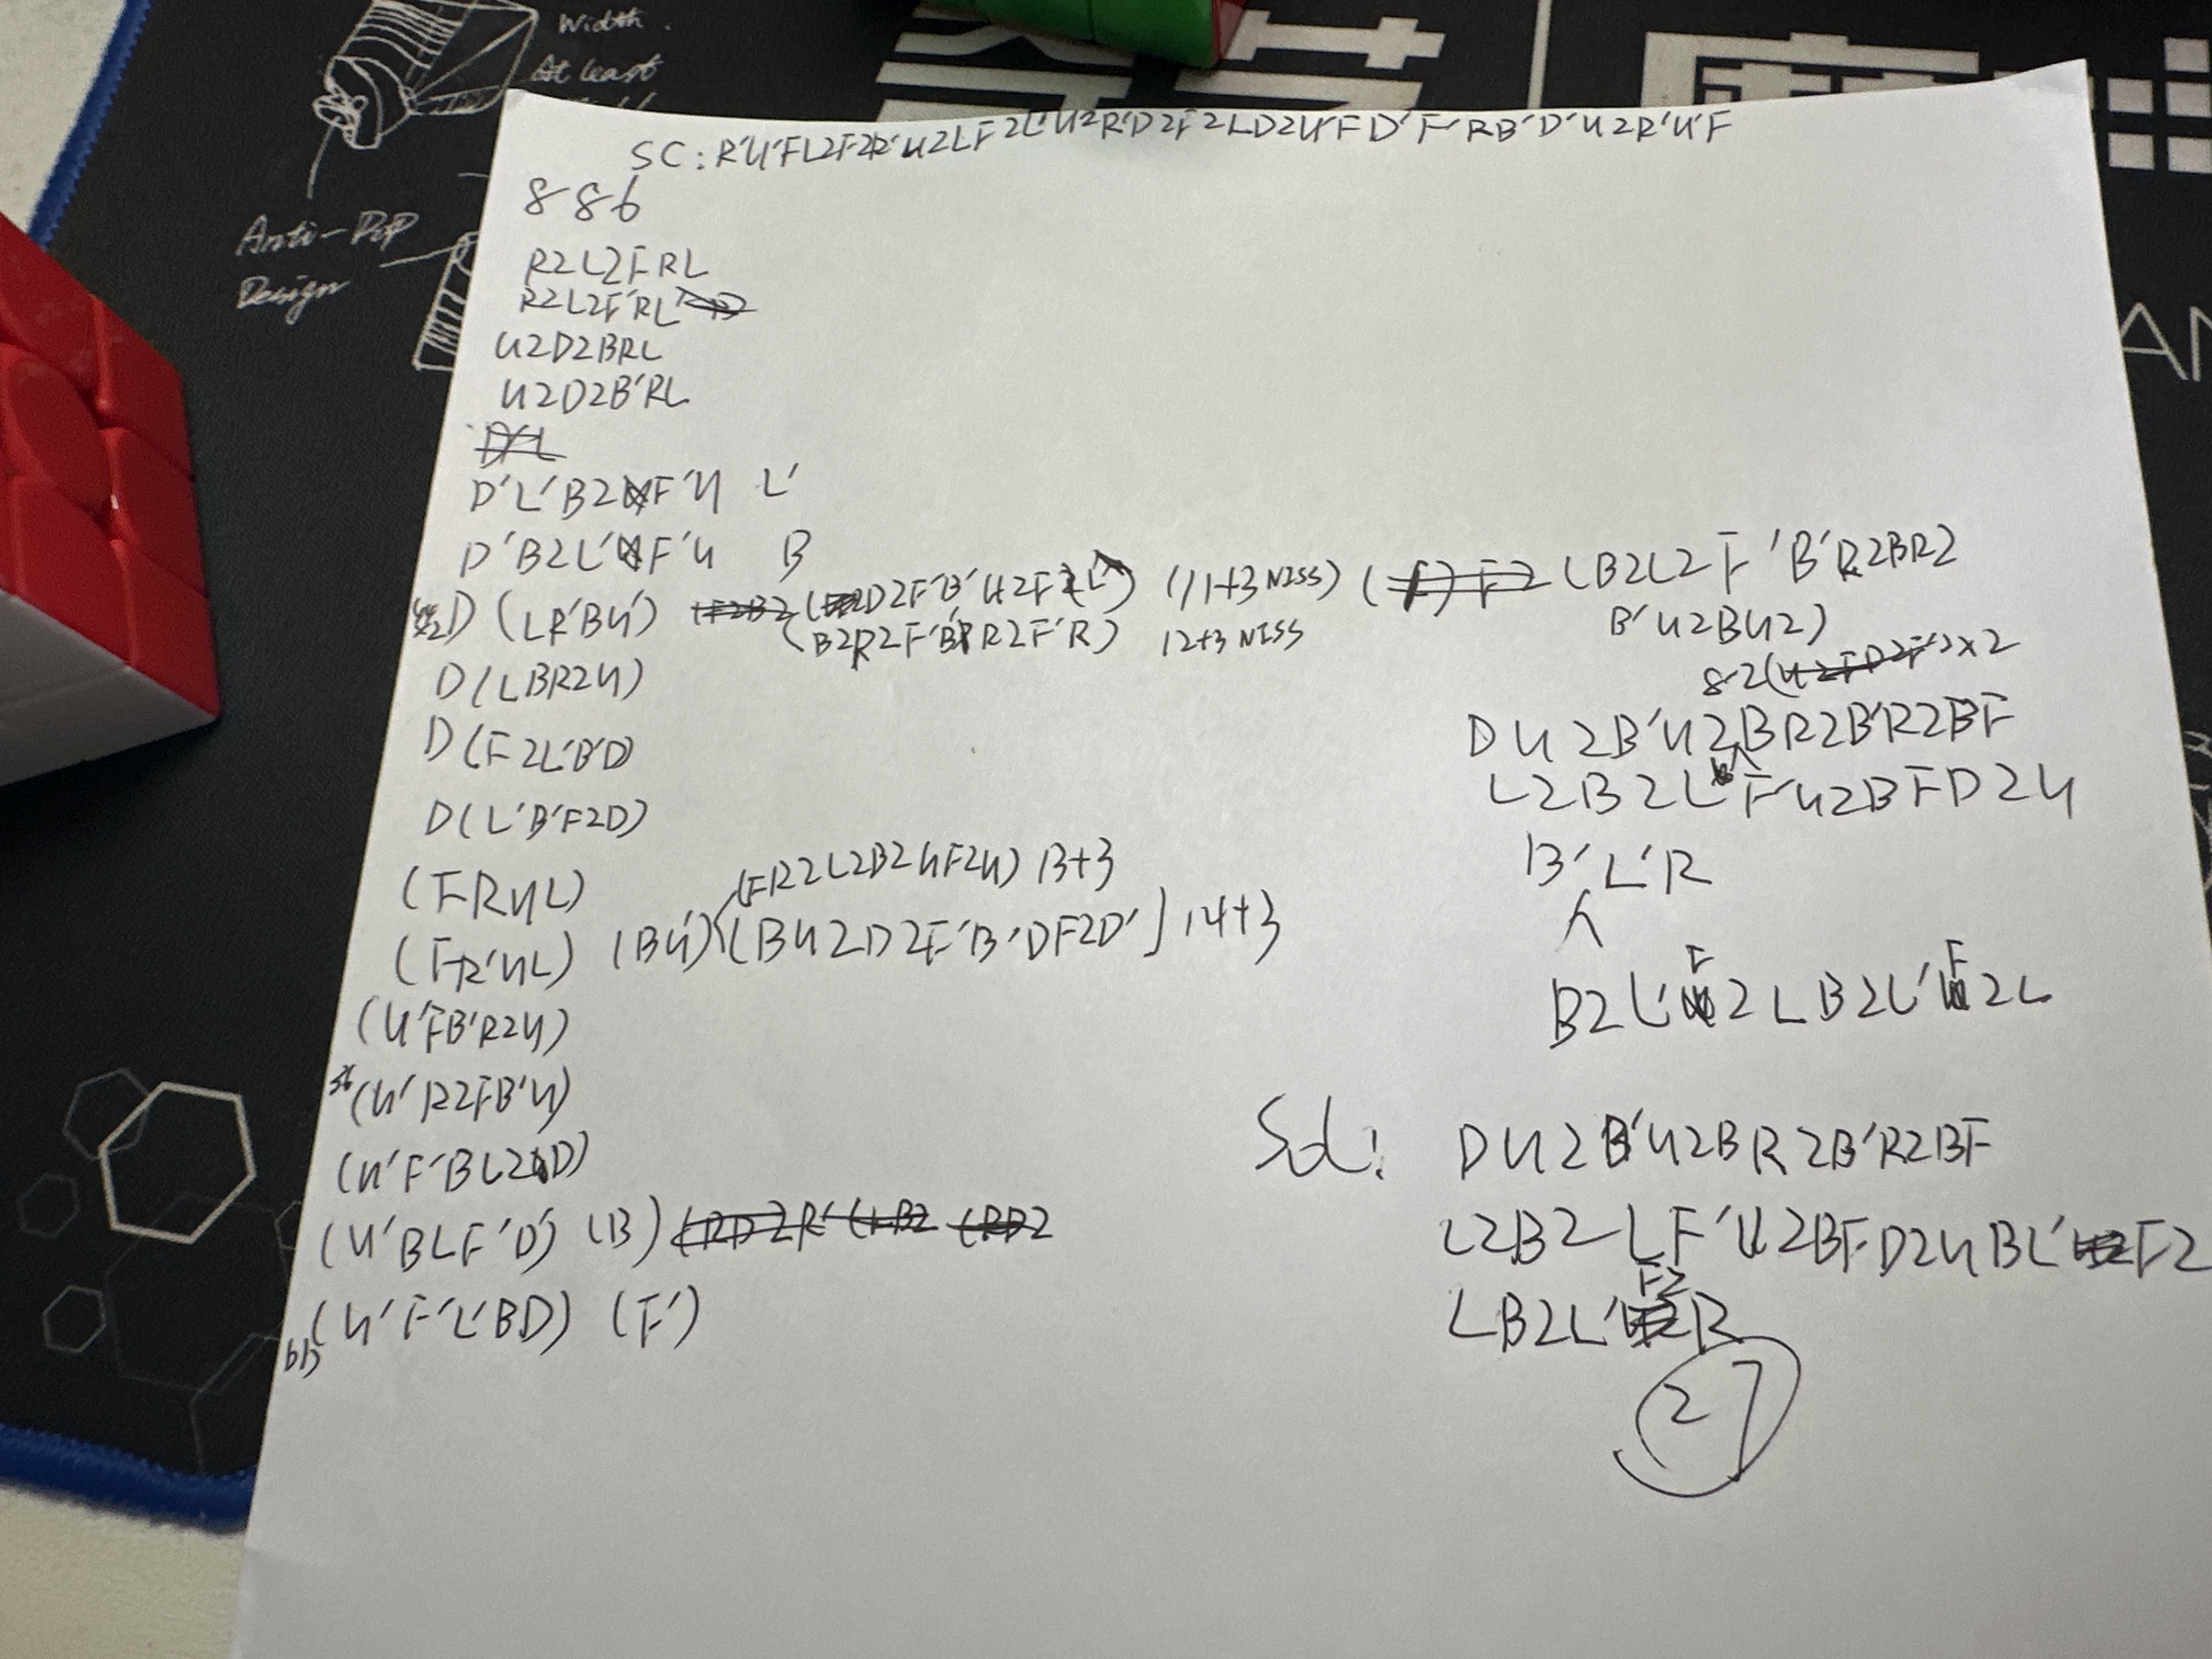 Width.
At least
Anti-Pop
Design
AN
SC: R'U'FL2F2R'U2LF2L'U2R'D2F2LD2U'FD'F'RB'D'U2R'U'F
886
R2L2FRL
R2L2F'RL
U2D2BRL
U2D2B'RL
D'L
D'L'B2F'U L'
D'B2L'F'U B
D (LR'BU') (D2F'B'U2F2 (11+3 NISS) LB2L2F'B'R2BR2
(B2R2F'B'R2F'R) 12+3 NISS B'U2BU2)
D(LBR2U) 82(U2FD2F')x2
D(F2L'B'D) DU2B'U2BR2B'R2BF
D(L'B'F2D) L2B2LF'U2BFD2U
(FRUL) (FR2L2B2UF2U) 13+3 B'L'R
(FR'UL) (BU') (BU2D2F'B'DF2D') 14+3
(U'FB'R2U) B2L'F2LB2L'F2L
(U'R2FB'U)
(U'F'BL2D) Sol: DU2B'U2BR2B'R2BF
(U'BLF'D') (B) L2B2LF'U2BFD2UBL'F2
(U'F'L'BD) (F') LB2L'F2R
27